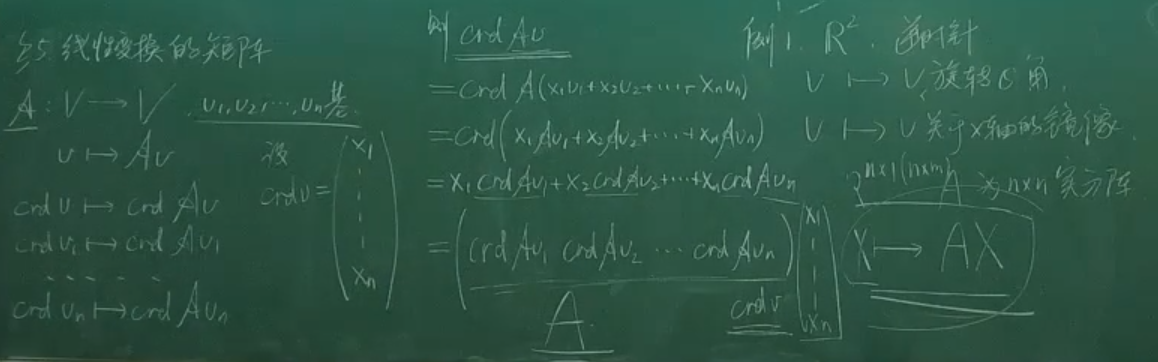 §5 线性变换的矩阵
A : V → V , v₁,v₂,…,vₙ基.
v ↦ Av
crd v ↦ crd Av
crd v₁ ↦ crd Av₁
- - - - - -
crd vₙ ↦ crd Avₙ
设
crd v = (x₁ ⋮ xₙ)
则 crd Av
= crd A(x₁v₁+x₂v₂+⋯+xₙvₙ)
= crd(x₁Av₁+x₂Av₂+⋯+xₙAvₙ)
= x₁ crd Av₁+x₂ crd Av₂+⋯+xₙ crd Avₙ
= (crd Av₁ crd Av₂ ⋯ crd Avₙ) (x₁ ⋮ xₙ)
A crd v
例1. R². 逆时针
v ↦ v 旋转θ角.
v ↦ v 关于x轴的镜像.
Rⁿˣ¹⁽ⁿˣᵐ⁾ A 为 n×n 实方阵
X ↦ AX